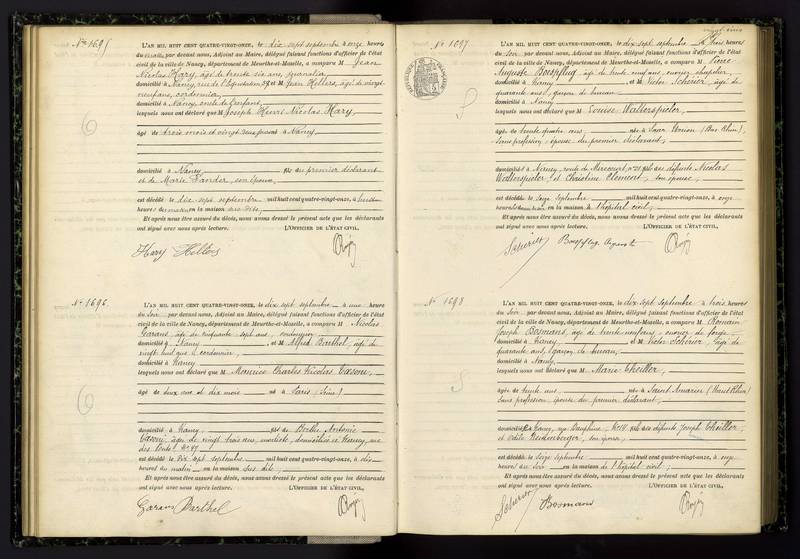 N° 1695
L'AN MIL HUIT CENT QUATRE-VINGT-ONZE, le dix sept septembre à onze heures
du matin, par devant nous, Adjoint au Maire, délégué faisant fonctions d'officier de l'état
civil de la ville de Nancy, département de Meurthe-et-Moselle, a comparu M Jean
Nicolas Hary, âgé de trente six ans, journalier
domicilié à Nancy, rue de l'Equitation, 58 et M Jean Helters, âgé de vingt
neuf ans, cordonnier,
domicilié à Nancy,
lesquels nous ont déclaré que M Joseph Henri Nicolas Hary,
âgé de trois mois et vingt deux jours né à Nancy,
domicilié à Nancy fils du premier déclarant
et de Marie Sander, son épouse,
est décédé le dix sept septembre mil huit cent quatre-vingt-onze, à
heures du matin en la maison sus dite,
Et après nous être assuré du décès, nous avons dressé le présent acte que les déclarants
ont signé avec nous après lecture. L'OFFICIER DE L'ÉTAT CIVIL,
Hary Helters
N° 1696
L'AN MIL HUIT CENT QUATRE-VINGT-ONZE, le dix sept septembre à une heure
du soir par devant nous, Adjoint au Maire, délégué faisant fonctions d'officier de l'état
civil de la ville de Nancy, département de Meurthe-et-Moselle, a comparu M Nicolas
âgé de cinquante sept ans,
domicilié à Nancy, et M Alfred Barthel, âgé de
vingt huit ans, cordonnier,
domicilié à Nancy
lesquels nous ont déclaré que M Maurice Charles Nicolas
âgé de deux ans et dix mois né à Paris (Seine)
domicilié à Nancy, fils de Berthe Antonie
âgée de vingt trois ans, modiste, domiciliée à Nancy, rue
est décédé le dix sept septembre mil huit cent quatre-vingt-onze, à dix
heures du matin en la maison sus dite,
Et après nous être assuré du décès, nous avons dressé le présent acte que les déclarants
ont signé avec nous après lecture. L'OFFICIER DE L'ÉTAT CIVIL,
Barthel
N° 1697
L'AN MIL HUIT CENT QUATRE-VINGT-ONZE, le dix sept septembre à trois heures
du soir par devant nous, Adjoint au Maire, délégué faisant fonctions d'officier de l'état
civil de la ville de Nancy, département de Meurthe-et-Moselle, a comparu M Pierre
Auguste Boespflug, âgé de trente neuf ans, ouvrier chapelier,
domicilié à Nancy et M Victor Scherier, âgé de
quarante ans, garçon de bureau
domicilié à Nancy
lesquels nous ont déclaré que M Louise Walterspieler,
âgée de trente quatre ans, née à Saar Union (Bas Rhin),
sans profession, épouse du premier déclarant,
domiciliée à Nancy, route de Mirecourt, fille des défunts Nicolas
Walterspieler et Christine Clement, son épouse,
est décédée le seize septembre mil huit cent quatre-vingt-onze, à onze
heures en la maison à l'hôpital civil,
Et après nous être assuré du décès, nous avons dressé le présent acte que les déclarants
ont signé avec nous après lecture. L'OFFICIER DE L'ÉTAT CIVIL,
Boespflug Auguste
N° 1698
L'AN MIL HUIT CENT QUATRE-VINGT-ONZE, le dix sept septembre à trois heures
du soir par devant nous, Adjoint au Maire, délégué faisant fonctions d'officier de l'état
civil de la ville de Nancy, département de Meurthe-et-Moselle, a comparu M Romain
Joseph Bosmans, âgé de trente neuf ans, ouvrier de forge
domicilié à Nancy et M Victor Scherier, âgé de
quarante ans, garçon de bureau,
domicilié à Nancy,
lesquels nous ont déclaré que M Marie Theiller,
âgée de trente ans, née à Saint Amarin (Haut Rhin)
sans profession, épouse du premier déclarant,
domiciliée à Nancy, rue Dauphine, fille des défunts Joseph Theiller
et Odile son épouse,
est décédée le seize septembre mil huit cent quatre-vingt-onze, à onze
heures du soir en la maison de l'hôpital civil,
Et après nous être assuré du décès, nous avons dressé le présent acte que les déclarants
ont signé avec nous après lecture. L'OFFICIER DE L'ÉTAT CIVIL,
Bosmans